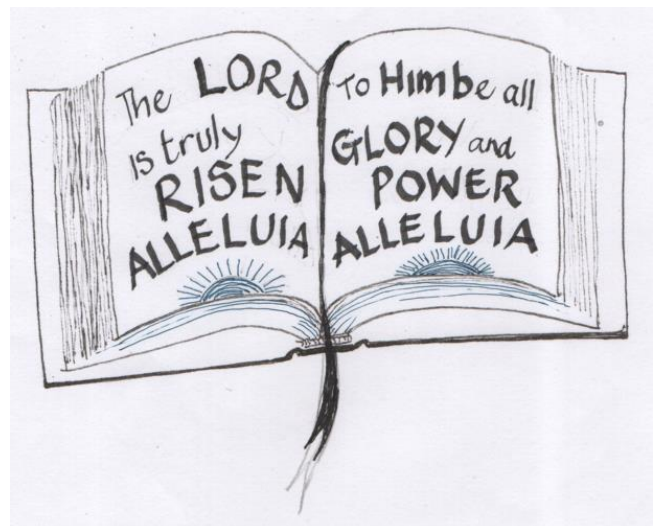 The LORD
is truly
RISEN
ALLELUIA
To Him be all
GLORY and
POWER
ALLELUIA